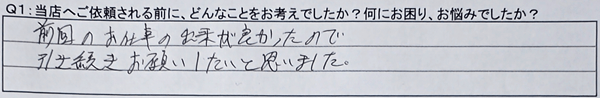 Q1：当店へご依頼される前に、どんなことをお考えでしたか？何にお困り、お悩みでしたか？
前回のお仕事の出来が良かったので
引き続きお願いしたいと思いました。